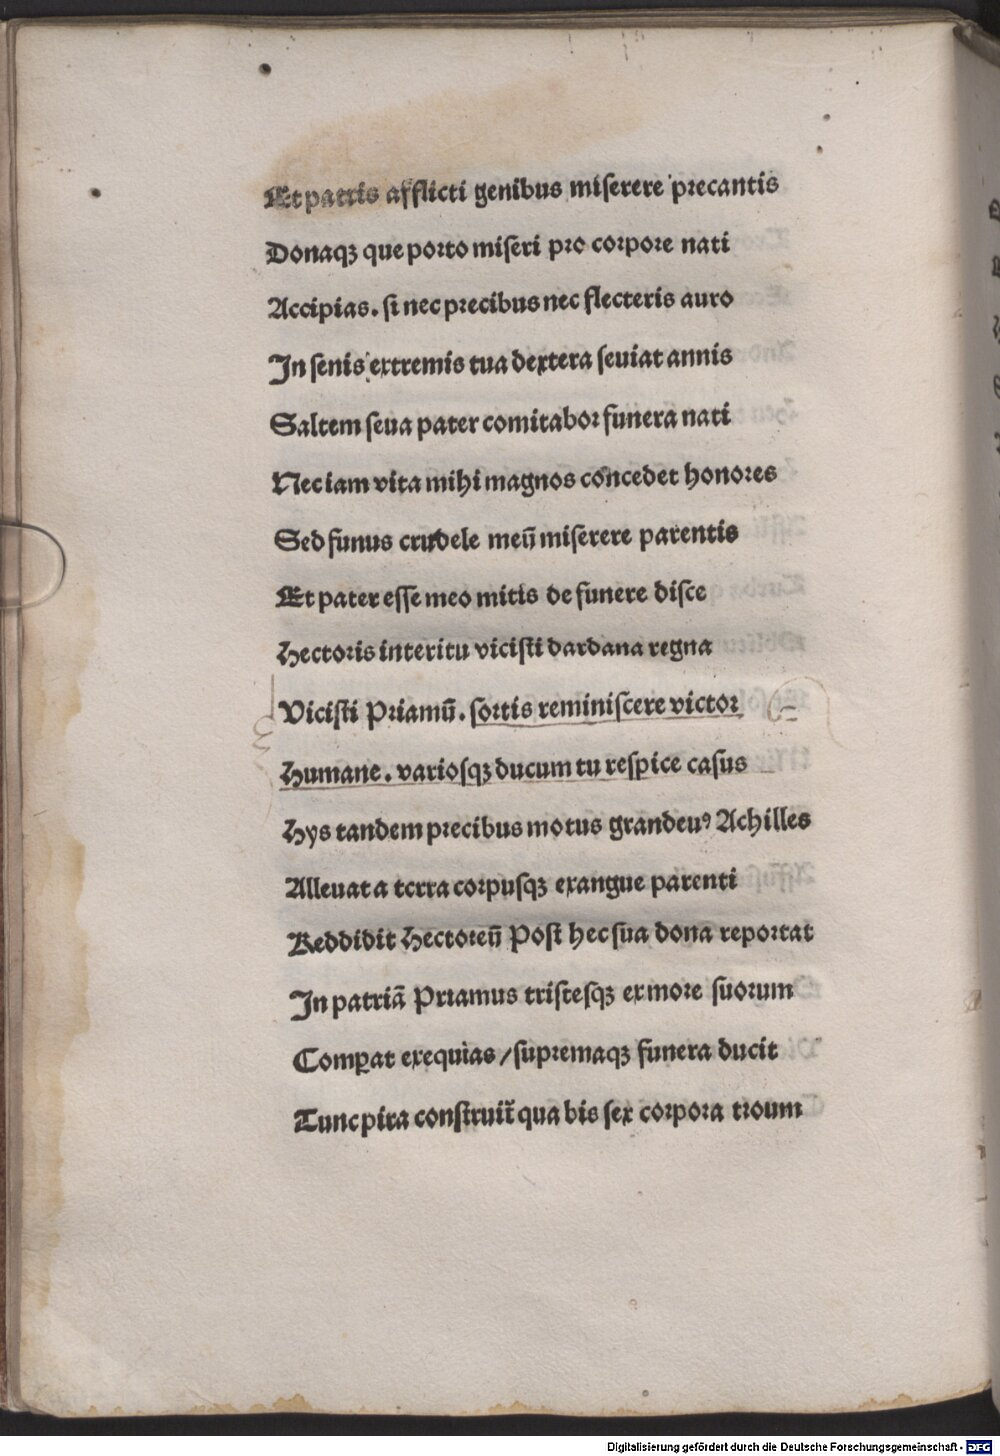 Et patris afflicti genibus miſerere precantis
Donaqꝫ que porto miſeri pro corpore nati
Accipias. ſi nec precibus nec flecteris auro
In ſenis extremis tua dextera ſeuiat annis
Saltem ſeua pater comitabor funera nati
Nec iam vita mihi magnos concedet honores
Sed funus crudele meū miſerere parentis
Et pater eſſe meo mitis de funere diſce
Hectoris interitu viciſti dardana regna
Viciſti Priamū. ſortis reminiſcere victor
Humane. varioſqꝫ ducum tu reſpice caſus
Hys tandem precibus motus grandeuꝰ Achilles
Alleuat a terra corpuſqꝫ exangue parenti
Reddidit Hectoreū Poſt hec ſua dona reportat
In patriā Priamus triſteſqꝫ ex more ſuorum
Comꝑat exequias / ſupremaqꝫ funera ducit
Tunc pira conſtruit̄ qua bis ſex corpora troum
Digitalisierung gefördert durch die Deutsche Forschungsgemeinschaft - DFG